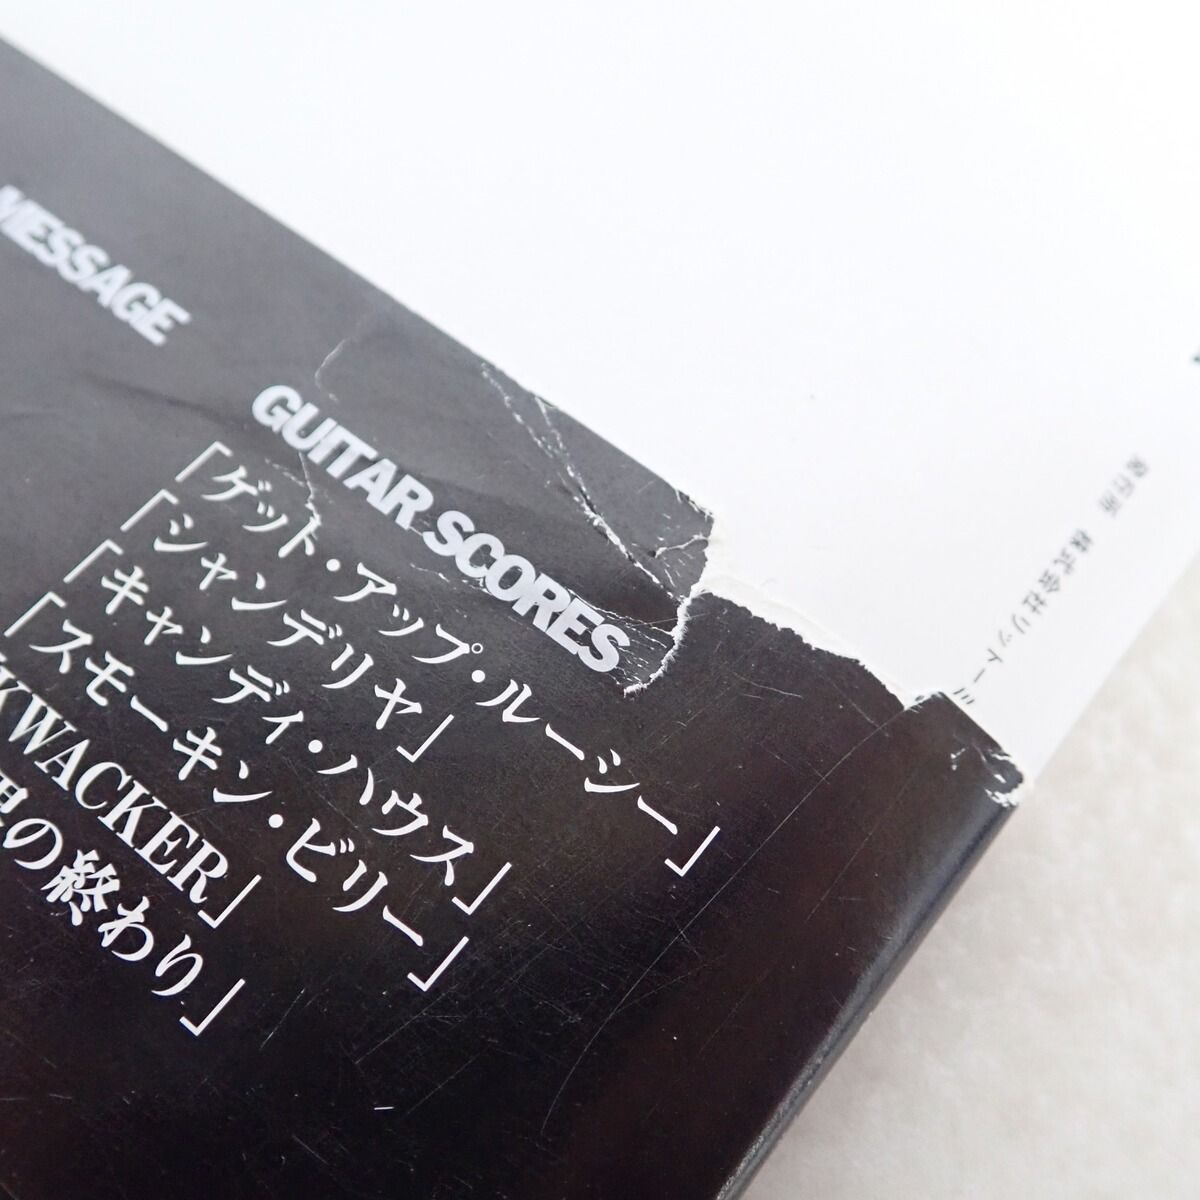 MESSAGE
GUITAR SCORES
「ゲット・アップ・ルーシー」
「シャンデリヤ」
「キャンディ・ハウス」
「スモーキン・ビリー」
KWACKER」
の終わり」
発行所 株式会社リットーミ